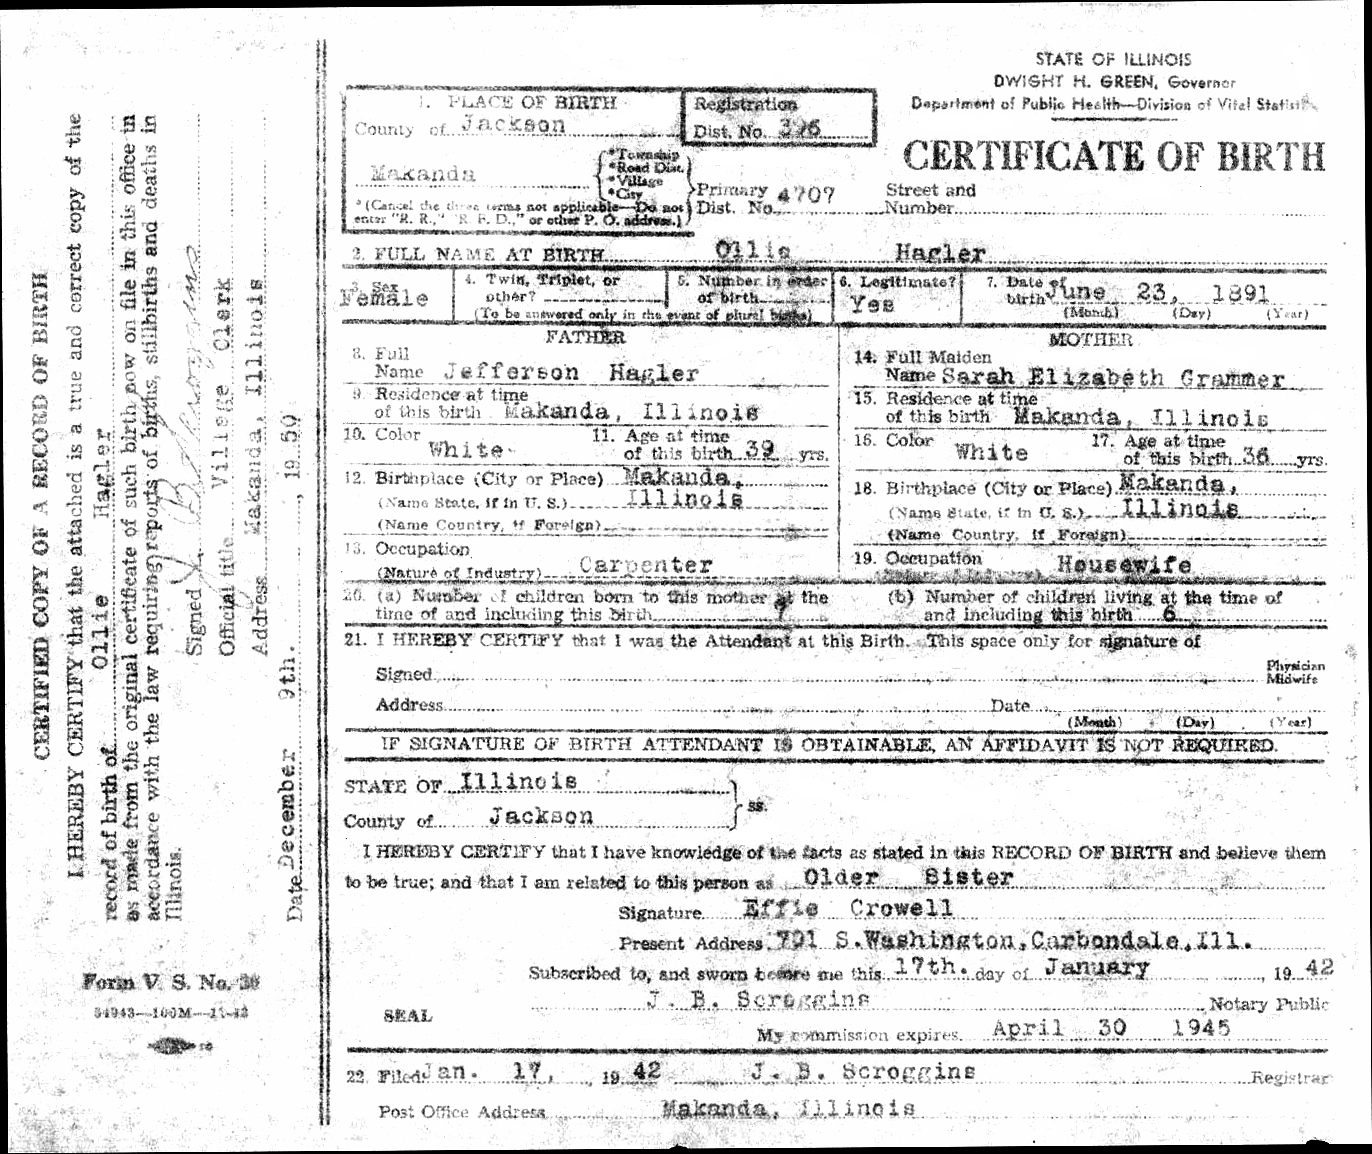 CERTIFIED COPY OF A RECORD OF BIRTH
I HEREBY CERTIFY that the attached is a true and correct copy of the
record of birth of Ollie Hagler
as made from the original certificate of such birth now on file in this office in
accordance with the law requiring reports of births, stillbirths and deaths in
Illinois.
Signed J. B. Scroggins
Official title Village Clerk
Address Makanda, Illinois
Date December 9th. , 19 50
Form V. S. No. 38
STATE OF ILLINOIS
DWIGHT H. GREEN, Governor
Department of Public Health—Division of Vital Statistics
CERTIFICATE OF BIRTH
1. PLACE OF BIRTH
County of Jackson
Registration
Dist. No.
Makanda
*Township
*Road Dist.
*Village
*City
*(Cancel the three terms not applicable—Do not
enter "R. R.," "R. F. D.," or other P. O. address.)
Primary
Dist. No. 4707
Street and
Number
2. FULL NAME AT BIRTH Ollie Hagler
3. Sex
Female
4. Twin, Triplet, or
other?
5. Number in order
of birth
(To be answered only in the event of plural births)
6. Legitimate?
Yes
7. Date of
birth June 23, 1891
(Month) (Day) (Year)
FATHER
8. Full
Name Jefferson Hagler
9. Residence at time
of this birth Makanda, Illinois
10. Color
White
11. Age at time
of this birth 39 yrs.
12. Birthplace (City or Place) Makanda,
(Name State, if in U. S.) Illinois
(Name Country, if Foreign)
13. Occupation
(Nature of Industry) Carpenter
MOTHER
14. Full Maiden
Name Sarah Elizabeth Grammer
15. Residence at time
of this birth Makanda, Illinois
16. Color
White
17. Age at time
of this birth 36 yrs.
18. Birthplace (City or Place) Makanda,
(Name State, if in U. S.) Illinois
(Name Country, if Foreign)
19. Occupation
Housewife
20. (a) Number of children born to this mother at the
time of and including this birth
(b) Number of children living at the time of
and including this birth 6
21. I HEREBY CERTIFY that I was the Attendant at this Birth. This space only for signature of
Signed
Physician
Midwife
Address Date
(Month) (Day) (Year)
IF SIGNATURE OF BIRTH ATTENDANT IS OBTAINABLE, AN AFFIDAVIT IS NOT REQUIRED.
STATE OF Illinois
ss.
County of Jackson
I HEREBY CERTIFY that I have knowledge of the facts as stated in this RECORD OF BIRTH and believe them
to be true; and that I am related to this person as Older Sister
Signature Effie Crowell
Present Address 701 S.Washington,Carbondale,Ill.
Subscribed to, and sworn before me this 17th. day of January , 19 42
J. B. Scroggins Notary Public
SEAL
My commission expires April 30 1945
22. Filed Jan. 17, , 19 42 J. B. Scroggins Registrar
Post Office Address Makanda, Illinois